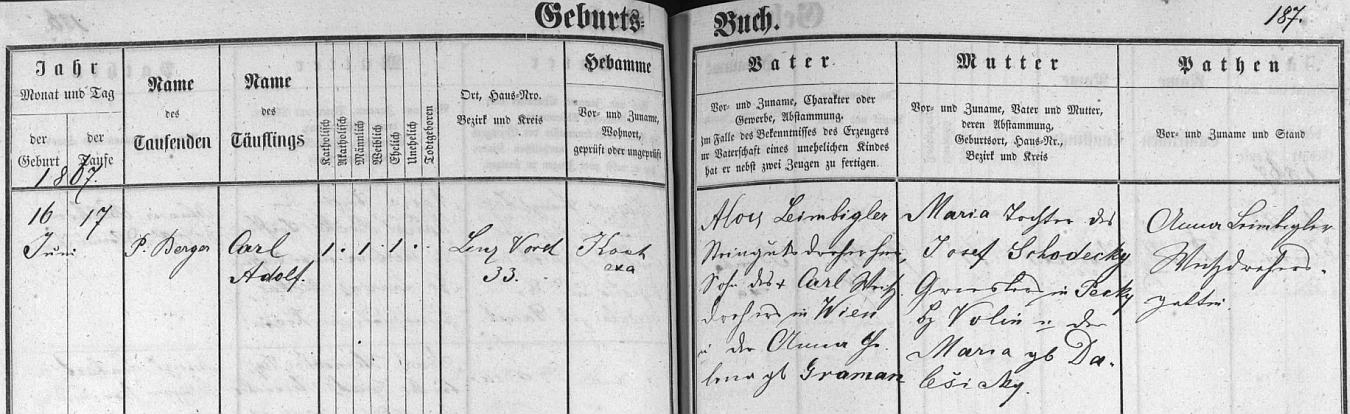 Geburts-Buch.
187.
Jahr
Monat und Tag
der Geburt
der Taufe
Name
des
Taufenden
Name
des
Täuflings
Katholisch
Akatholisch
Männlich
Weiblich
Ehelich
Unehelich
Todtgeboren
Ort, Haus-Nro.
Bezirk und Kreis
Hebamme
Vor- und Zuname,
Wohnort,
geprüft oder ungeprüft
Vater
Vor- und Zuname, Charakter oder
Gewerbe, Abstammung,
Im Falle des Bekenntnisses des Erzeugers
zur Vaterschaft eines unehelichen Kindes
hat er nebst zwei Zeugen zu fertigen.
Mutter
Vor- und Zuname, Vater und Mutter,
deren Abstammung,
Geburtsort, Haus-Nr.,
Bezirk und Kreis
Pathen
Vor- und Zuname und Stand
1867.
16 17
Juni
P. Berger
Carl
Adolf.
1 . 1 . 1 . .
33.
exa
Alois Leimbigler
Sohn des + Carl
in Wien
u der Anna
gb Graman
Maria Tochter des
Josef Schodecky
in Pecky
by Volin u der
Maria gb Da-
lešicky
Anna Leimbigler
gattin